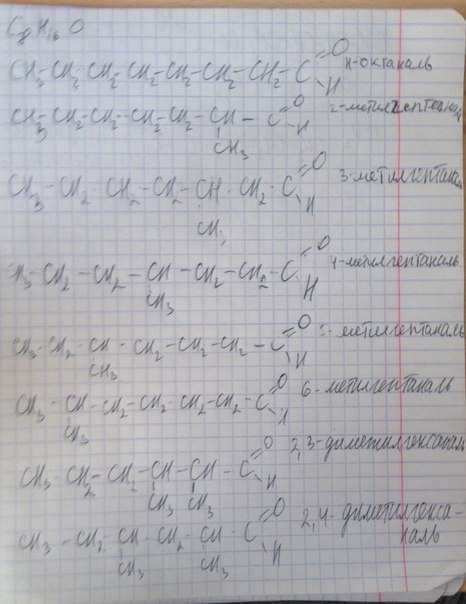 C₈H₁₆O
CH₃-CH₂-CH₂-CH₂-CH₂-CH₂-CH₂-C=O н-октаналь
H
CH₃-CH₂-CH₂-CH₂-CH₂-CH-C=O 2-метилгептаналь
H
CH₃
CH₃-CH₂-CH₂-CH₂-CH-CH₂-C=O 3-метилгептаналь
H
CH₃
CH₃-CH₂-CH₂-CH-CH₂-CH₂-C=O 4-метилгептаналь
H
CH₃
CH₃-CH₂-CH-CH₂-CH₂-CH₂-C=O 5-метилгептаналь
H
CH₃
CH₃-CH-CH₂-CH₂-CH₂-CH₂-C=O 6-метилгептаналь
H
CH₃
CH₃-CH₂-CH₂-CH-CH-C=O 2,3-диметилгексаналь
H
CH₃ CH₃
CH₃-CH₂-CH-CH₂-CH-C=O 2,4-диметилгекса-
наль
H
CH₃ CH₃